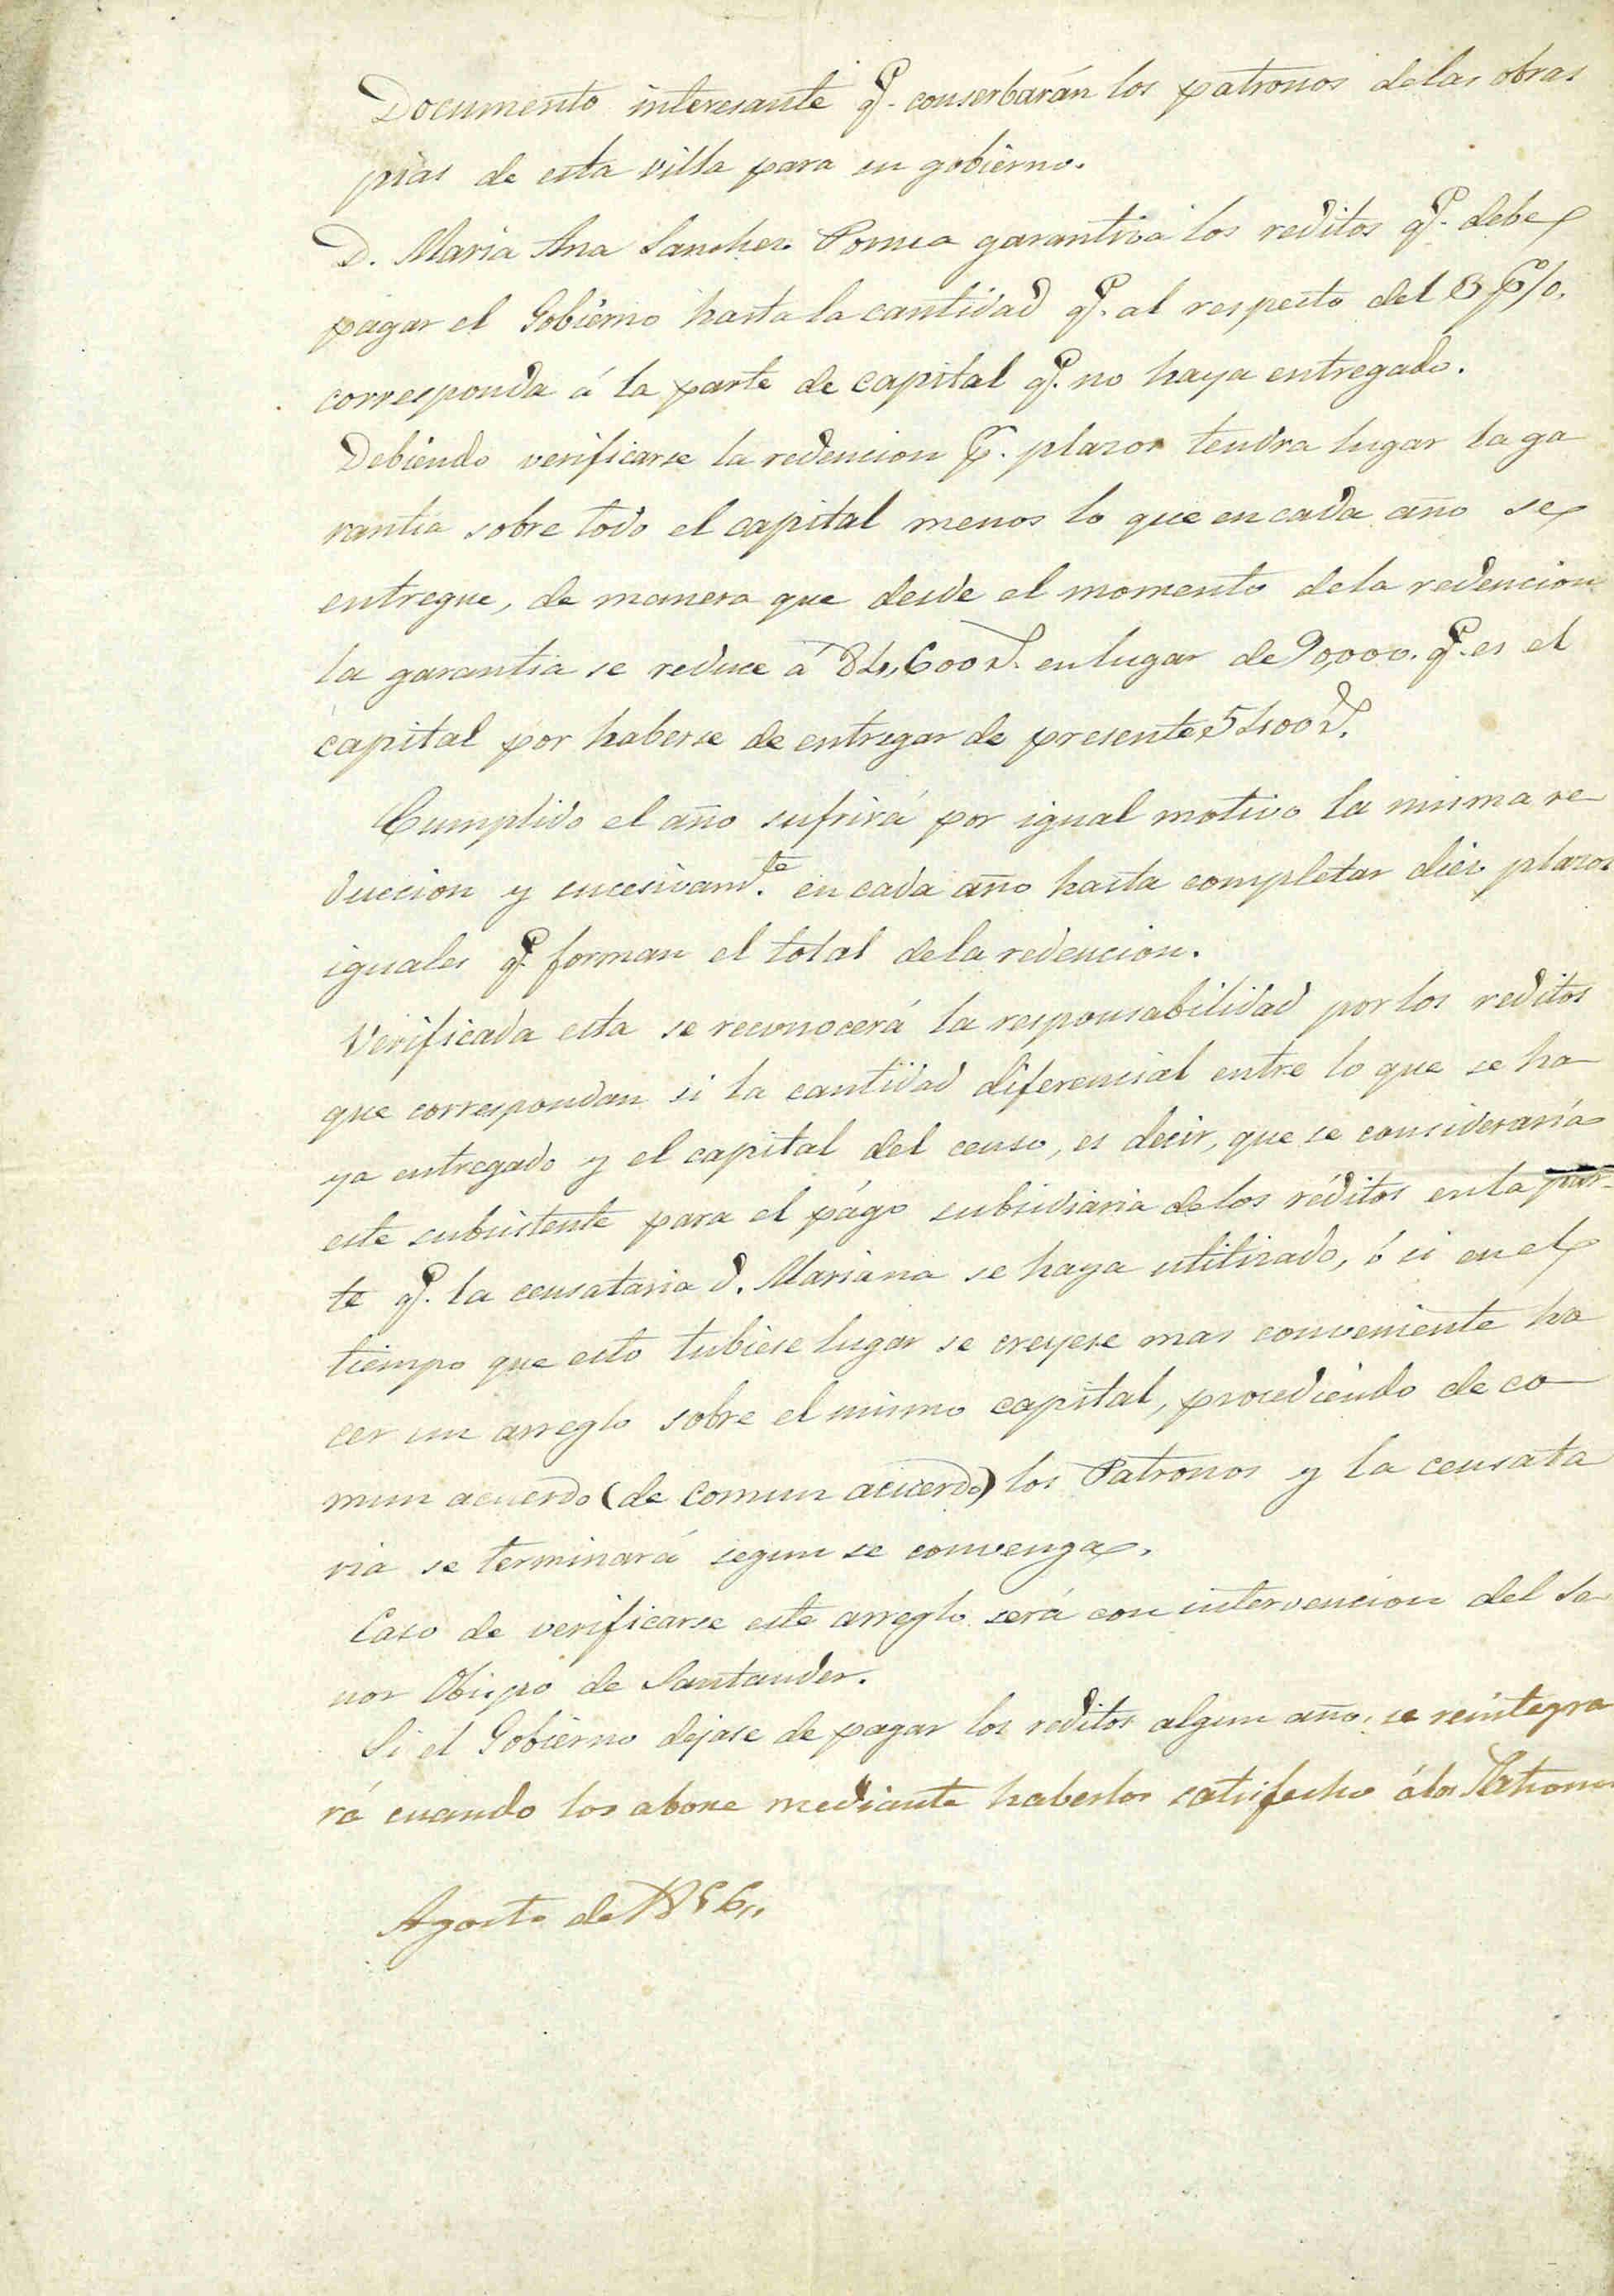 Documento interesante q.e conserbarán los patronos delas obras
pias de esta villa para su gobierno.
D. Maria Ana Sanchez Porrua garantiza los reditos q.e debe
pagar el Gobierno hasta la cantidad q.e al respecto del 3 p%.
corresponda á la parte de capital q.e no haya entregado.
Debiendo verificarse la redencion p.r plazos tendra lugar la ga
rantia sobre todo el capital menos lo que en cada año se
entregue, de manera que desde el momento dela redencion
la garantia se reduce á 84,600 r.s en lugar de 90,000. q.e es el
capital por haberse de entregar de presente 5400 r.s
Cumplido el año sufrirá por igual motivo la misma re
duccion y sucesivam.te en cada año hasta completar diez plazos
iguales q.e forman el total dela redencion.
Verificada esta se reconocerá la responsabilidad por los reditos
que correspondan si la cantidad diferencial entre lo que se ha
ya entregado y el capital del censo, es decir, que se consideraría
este subsistente para el págo subsidiaria de los réditos en la par-
te q.e la censataria d. Mariana se haya utilizado, ó si en el
tiempo que esto tubiese lugar se creyese mas conveniente ha
cer un arreglo sobre el mismo capital, procediendo de co
mun acuerdo (de comun acuerdo) los Patronos y la censata
ria se terminará segun se convenga.
Caso de verificarse este arreglo será con intervencion del Se
nor Obispo de Santander.
Si el Gobierno dejase de pagar los reditos algun año, se reintegra
rá cuando los abone mediante haberlos satisfecho á los Patronos
Agosto de 1856,,